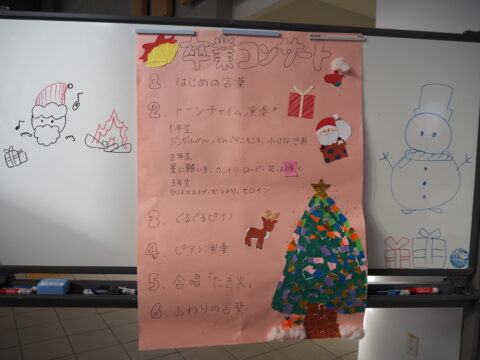 卒業コンサート
1. はじめの言葉
2. トーンチャイム演奏
1年生
ジングルベル、どんぐりころころ、小さな世界
2年生
星に願いを、カントリーロード、花は咲く
3年生
クリスマスイブ、センメリ、ヒロイン
3. ぐるぐるピアノ
4. ピアノ演奏
5. 合唱「たき火」
6. おわりの言葉